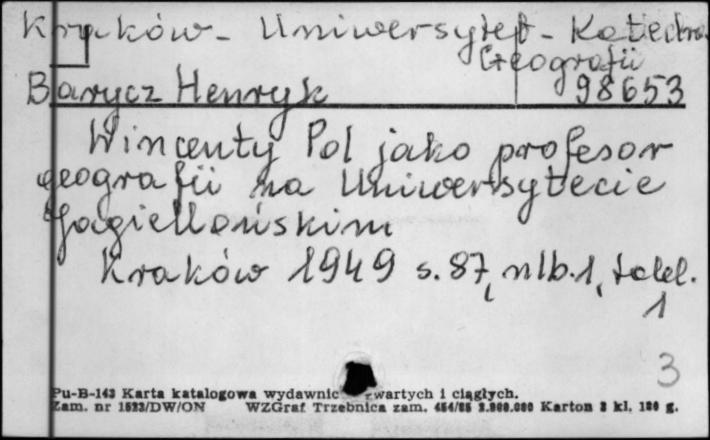 Kraków - Uniwersytet - Katedra
Geografii
Barycz Henryk 98653
Wincenty Pol jako profesor
geografii na Uniwersytecie
Jagiellońskim
Kraków 1949 s. 87, nlb. 1, tabl.
1
3
Pu-B-143 Karta katalogowa wydawnic wartych i ciągłych.
Zam. nr 1523/DW/ON WZGraf Trzebnica zam. 454/85 2.900.000 Karton 3 kl. 180 g.